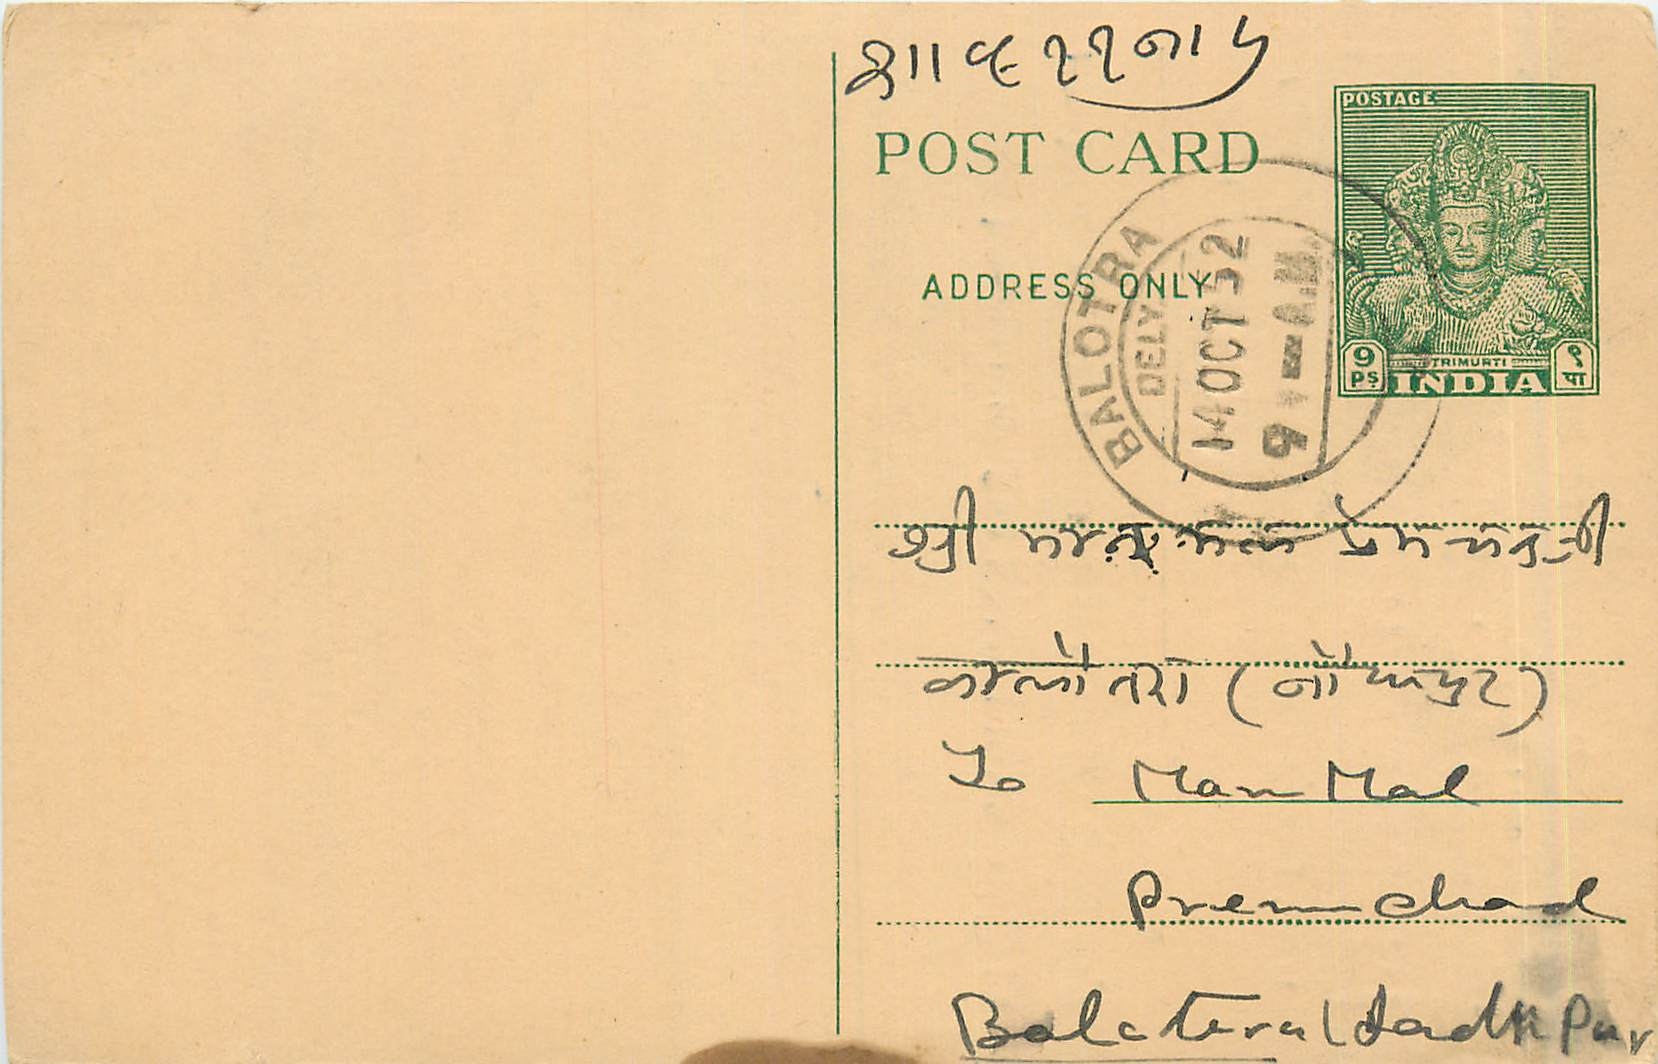 POSTAGE
POST CARD
ADDRESS ONLY
BALOTRA
DELY
14 OCT 52
9 - A.M.
9 PS
TRIMURTI
INDIA
९ पा
श्री प्रेमचन्दजी
बालोतरा (जोधपुर)
To Man Mal
Premchad
Balotera (Jodhpur